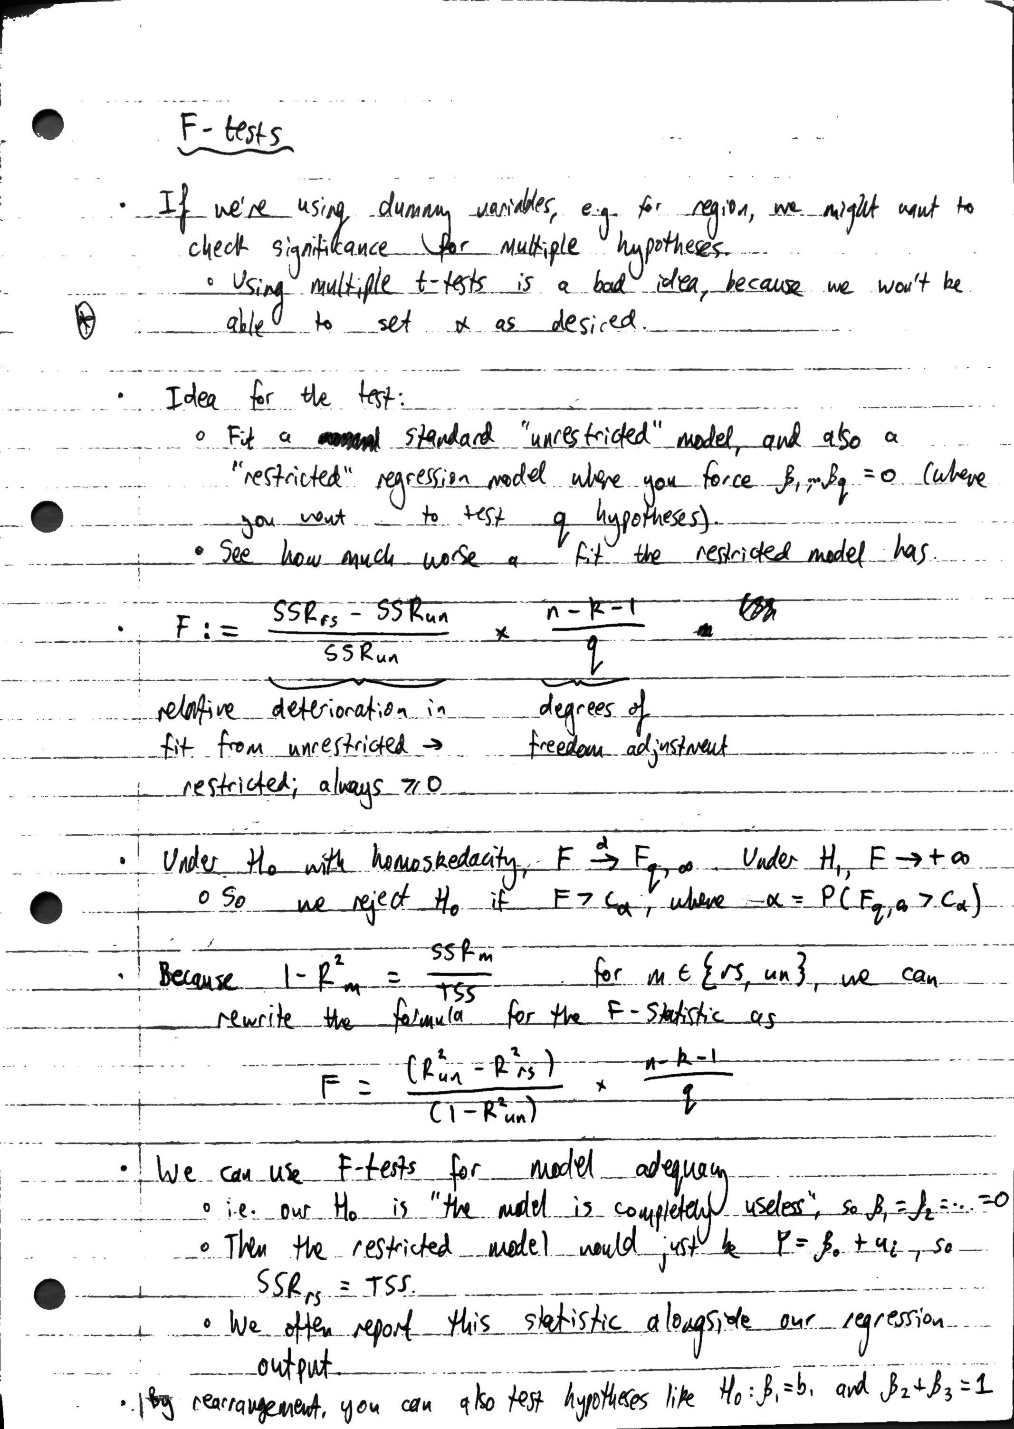 F-tests
· If we're using dummy variables, e.g. for region, we might want to
check significance for multiple hypotheses.
◦ Using multiple t-tests is a bad idea, because we won't be
able to set α as desired.
· Idea for the test:
◦ Fit a standard "unrestricted" model, and also a
"restricted" regression model where you force β₁,...βq = 0 (where
you want to test q hypotheses).
• See how much worse a fit the restricted model has.
· F := (SSRrs - SSRun)/SSRun × (n-k-1)/q
relative deterioration in degrees of
fit from unrestricted → freedom adjustment
restricted; always ⩾ 0
· Under H₀ with homoskedacity, F →ᵈ Fq,∞ Under H₁, F → +∞
◦ So we reject H₀ if F > Cα, where α = P(Fq,∞ > Cα)
· Because 1 - R²m = SSRm/TSS for m ∈ {rs, un}, we can
rewrite the formula for the F-statistic as
F = (R²un - R²rs)/(1 - R²un) × (n-k-1)/q
· We can use F-tests for model adequacy
◦ i.e. our H₀ is "the model is completely useless", so β₁ = β₂ = ... = 0
◦ Then the restricted model would just be Y = β₀ + uᵢ, so
SSRrs = TSS.
◦ We often report this statistic alongside our regression
output.
· By rearrangement, you can also test hypotheses like H₀: β₁ = b₁ and β₂ + β₃ = 1